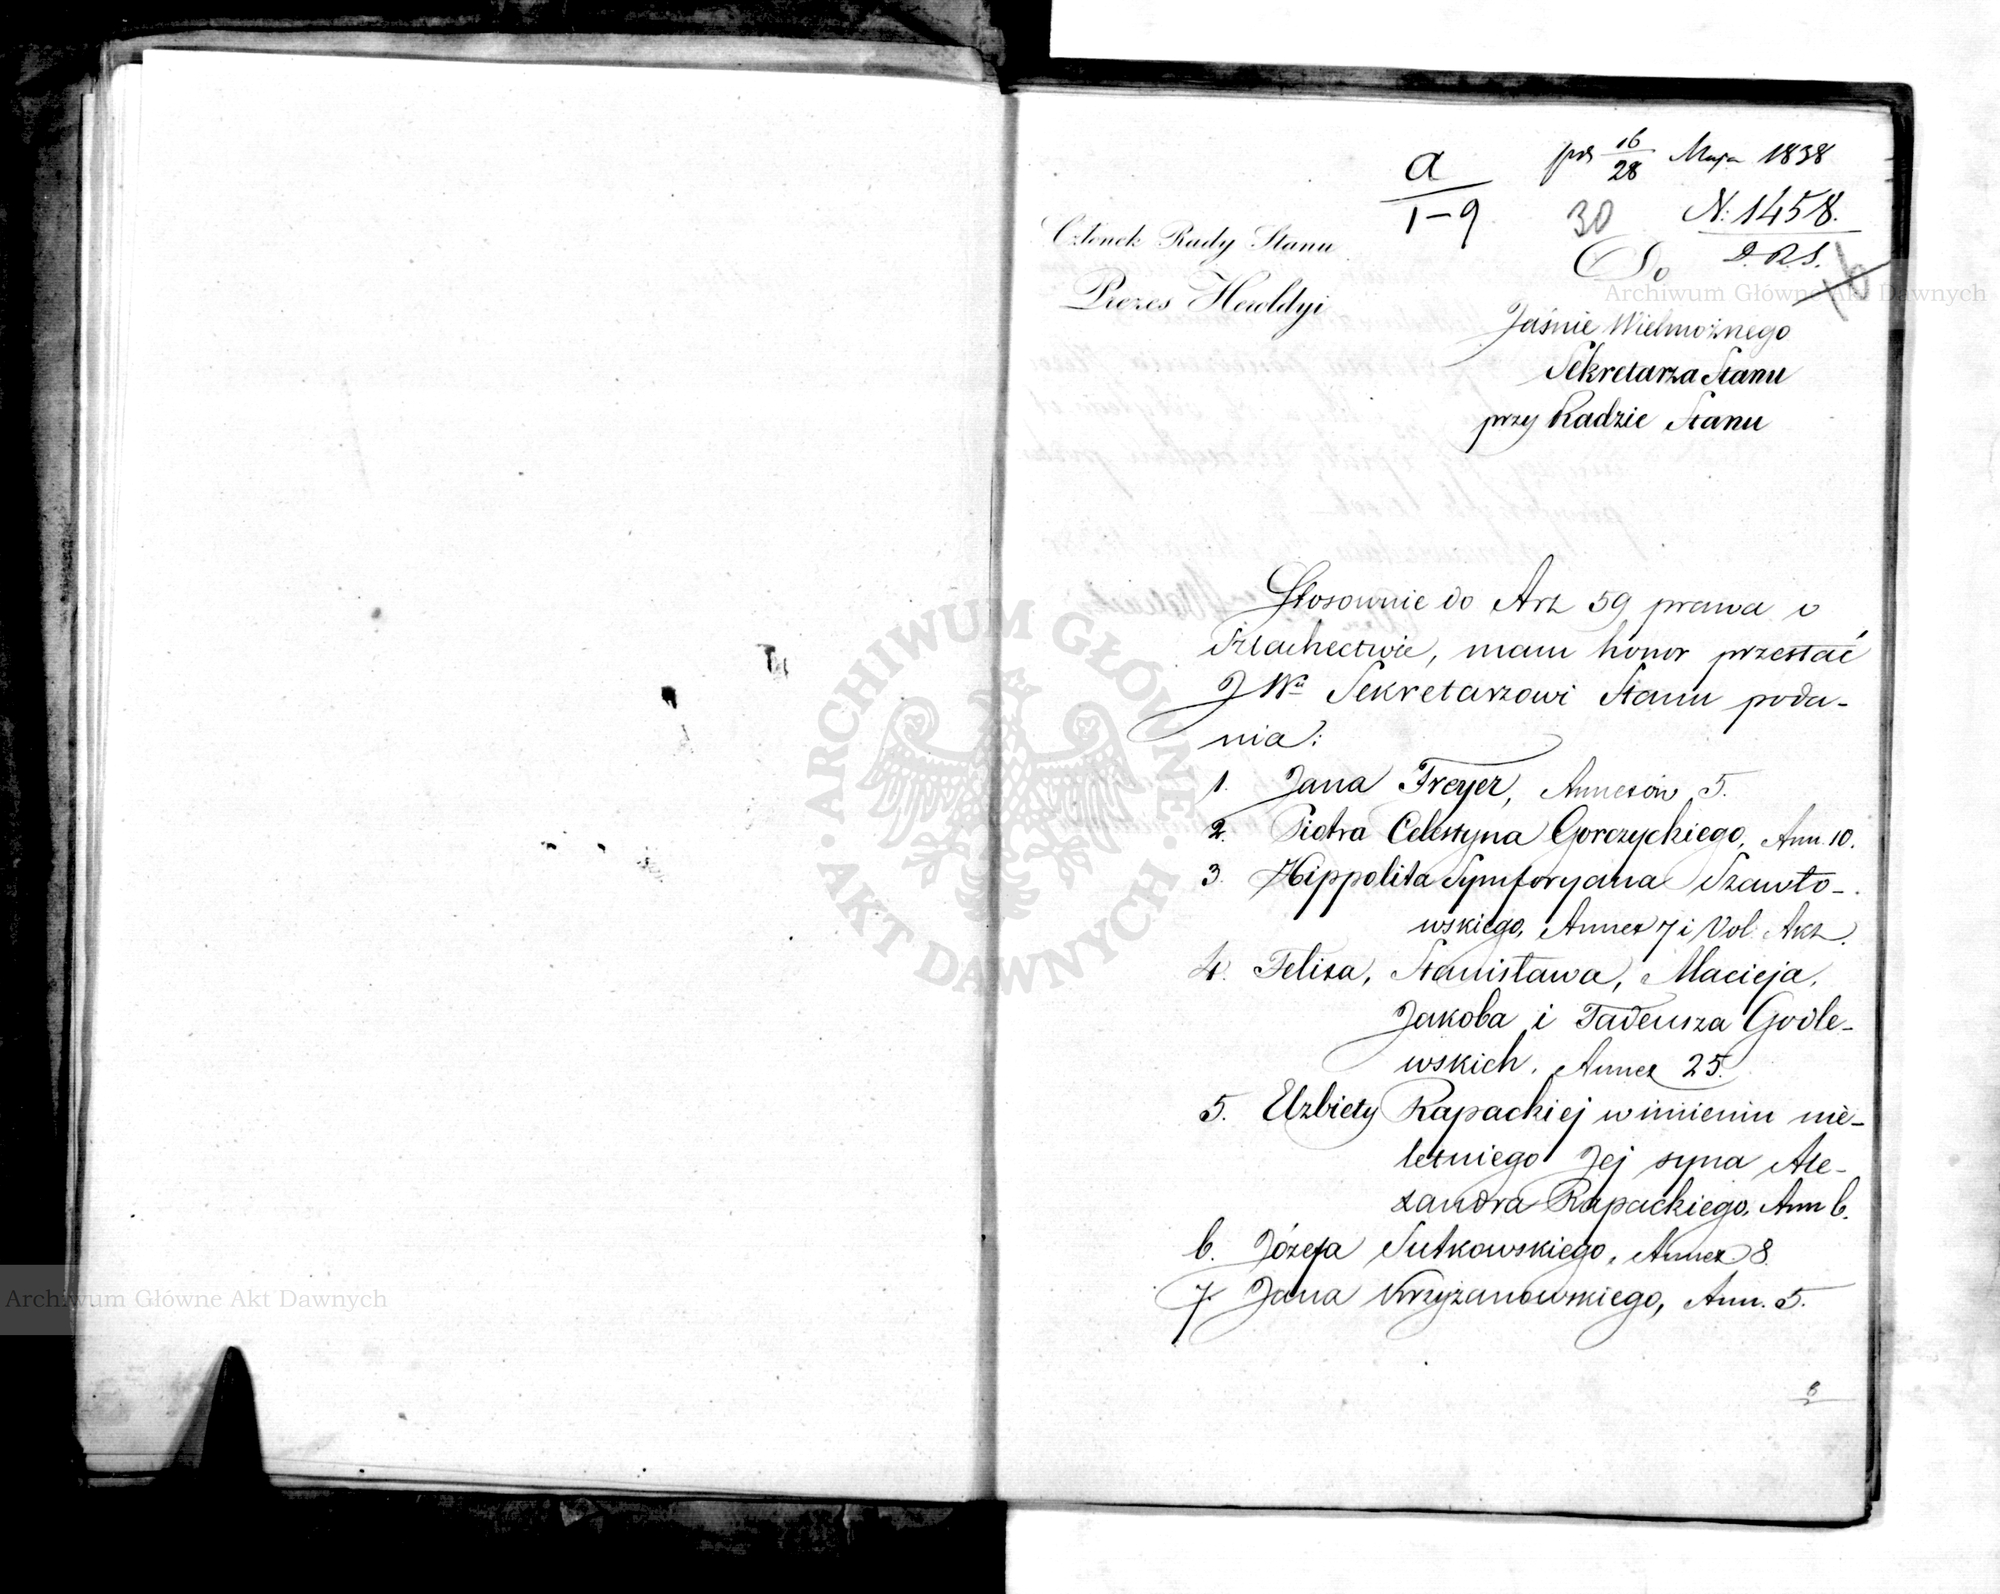 a
1-9
pds 16/28 Maja 1838
30
N: 1458.
D. R. S.
Członek Rady Stanu
Prezes Heroldyi
Do
Jaśnie Wielmożnego
Sekretarza Stanu
przy Radzie Stanu
Stosownie do Art 59 prawa o
Szlachectwie, mam honor przesłać
JWu Sekretarzowi Stanu poda-
nia:
1. Jana Freyer, Annexów 5.
2. Piotra Celestyna Gorczyckiego, Ann. 10.
3. Hippolita Symforyana Szawło-
wskiego, Annex 7 i Vol: Akt.
4. Felixa, Stanisława, Macieja,
Jakoba i Tadeusza Godle-
wskich, Annex 25.
5. Elzbiety Rapackiej w imieniu nie-
letniego Jej syna Ale-
xandra Rapackiego, Ann 6.
6. Józefa Sutkowskiego, Annex 8.
7. Jana Krzyżanowskiego, Ann. 5.
8
ARCHIWUM GŁÓWNE AKT DAWNYCH
Archiwum Główne Akt Dawnych
Archiwum Główne Akt Dawnych